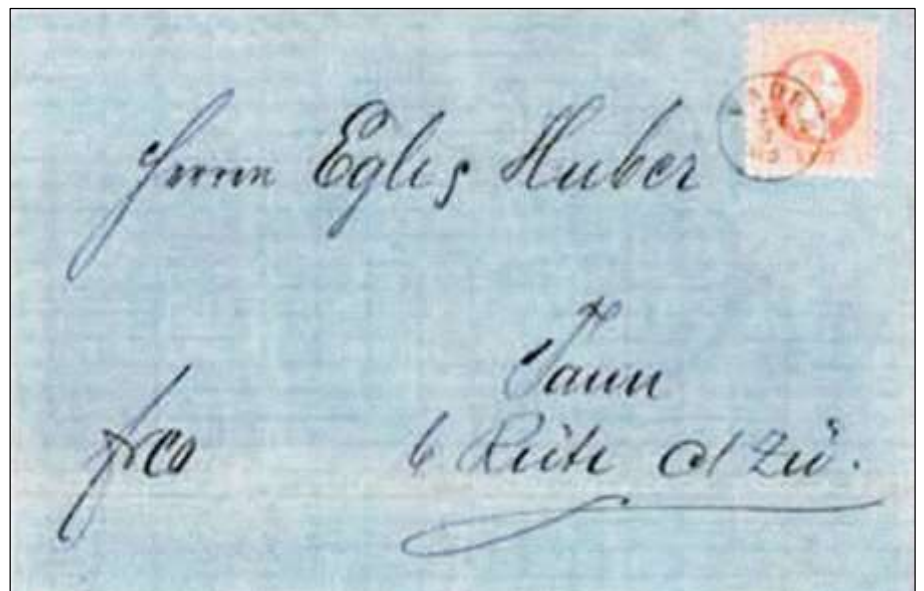 Herrn Eglis Huber
Tann
frco b Rüti Ct Zü.